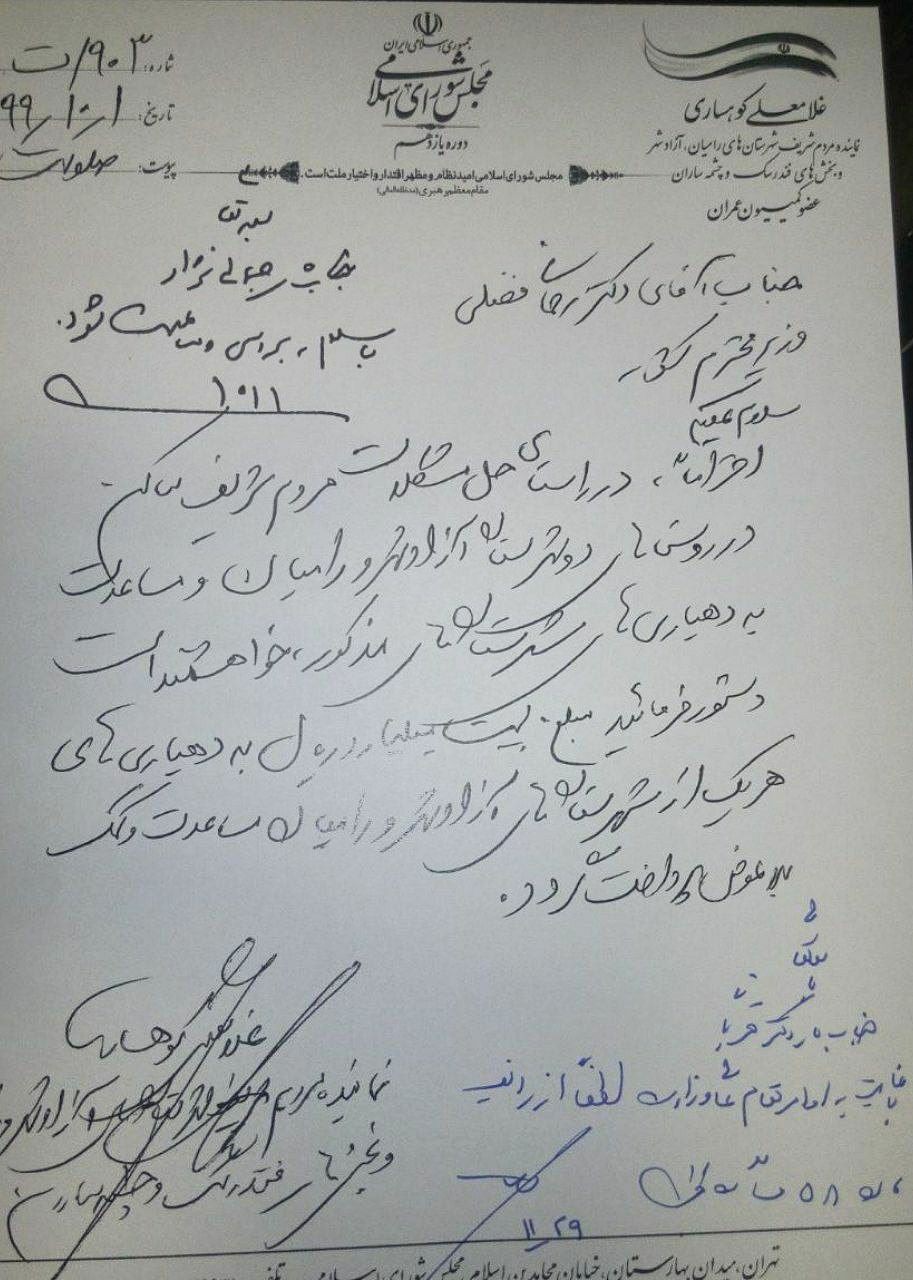 جمهوری اسلامی ایران
مجلس شورای اسلامی
دوره یازدهم
مجلس شورای اسلامی امید نظام و مظهر اقتدار و اختیار ملت است.
مقام معظم رهبری (مدظله‌العالی)
غلامعلی کوهساری
نماینده مردم شریف شهرستان های رامیان، آزادشهر
و بخش های فندرسک و چشمه ساران
عضو کمیسیون عمران
شماره: ۹۰۳/ت
تاریخ: ۹۹/۱۰/۱
پیوست:
بسمه تعالی
جناب جمالی نژاد
با سلام، بررسی و مساعدت شود.
۱۰/۱۱
جناب آقای دکتر رحمانی فضلی
وزیر محترم کشور
سلام علیکم
احتراماً، در راستای حل مشکلات مردم شریف ساکن
در روستاهای دو شهرستان آزادشهر و رامیان و مساعدت
به دهیاری های شهرستان های مذکور، خواهشمند است
دستور فرمائید مبلغ بیست میلیارد ریال به دهیاری های
هر یک از شهرستان های آزادشهر و رامیان مساعدت و کمک
بلاعوض پرداخت گردد.
غلامعلی کوهساری
نماینده مردم شریف رامیان و آزادشهر
و بخش های فندرسک و چشمه ساران
جناب دکتر
با عنایت به اوامر مقام عالی وزارت لطفاً
۱۱/۲۹
تهران، میدان بهارستان، خیابان مجاهدین اسلام، مجلس شورای اسلامی تلفن